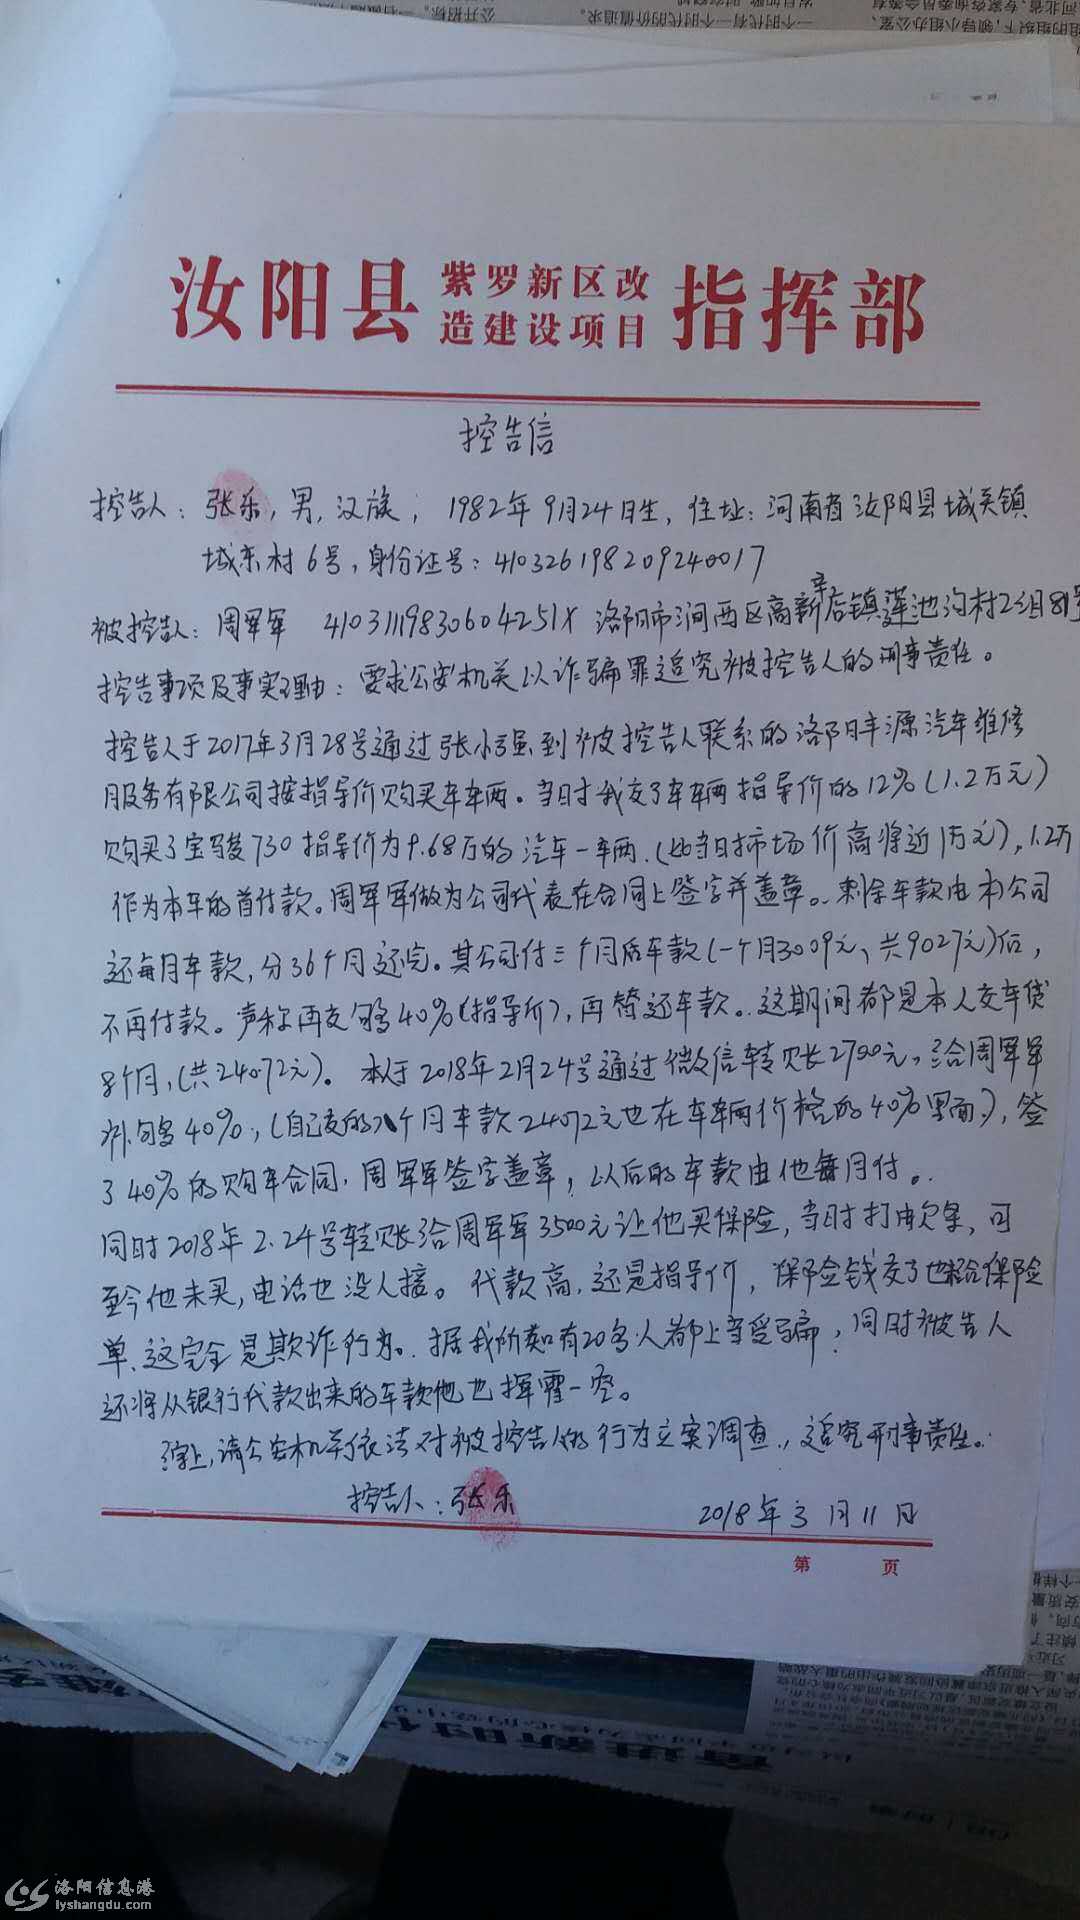 汝阳县紫罗新区改造建设项目指挥部
控告信
控告人：张乐，男，汉族，1982年9月24日生，住址：河南省汝阳县城关镇
城东村6号，身份证号：410326198209240017
被控告人：周军军 41031119830604251X 洛阳市涧西区高新辛店镇莲池沟村2组81号
控告事项及事实理由：要求公安机关以诈骗罪追究被控告人的刑事责任。
控告人于2017年3月28号通过张小强到被控告人联系的洛阳丰源汽车维修
服务有限公司按指导价购买车车辆。当时我交了车车辆指导价的12%（1.2万元）
购买了宝骏730指导价为9.68万的汽车一车辆，（比当时市场价高将近1万元），1.2万
作为本车的首付款。周军军做为公司代表在合同上签字并盖章。剩余车款由本公司
还每月车款，分36个月还完。其公司付三个月后车款（一个月3009元，共9027元）后，
不再付款。声称再交够40%（指导价），再替还车款。这期间都是本人交车贷
8个月，（共24072元）。本人于2018年2月24号通过微信转账2700元，给周军军
补够40%，（自己交的八个月车款24072元也在车车辆价格的40%里面），签
了40%的购车合同，周军军签字盖章，以后的车款由他每月付。
同时2018年2.24号转账给周军军3500元让他买保险，当时打由欠条，可
至今他未买，电话也没人接。代款高，还是指导价，保险钱交了也未给保险
单、这完全是欺诈行为。据我所知有20多人都上当受骗，同时被告人
还将从银行代款出来的车款他也挥霍一空。
综上，请公安机关依法对被控告人的行为立案调查，追究刑事责任。
控告人：张乐 2018年3月11日
第 页
洛阳信息港
lyshangdu.com